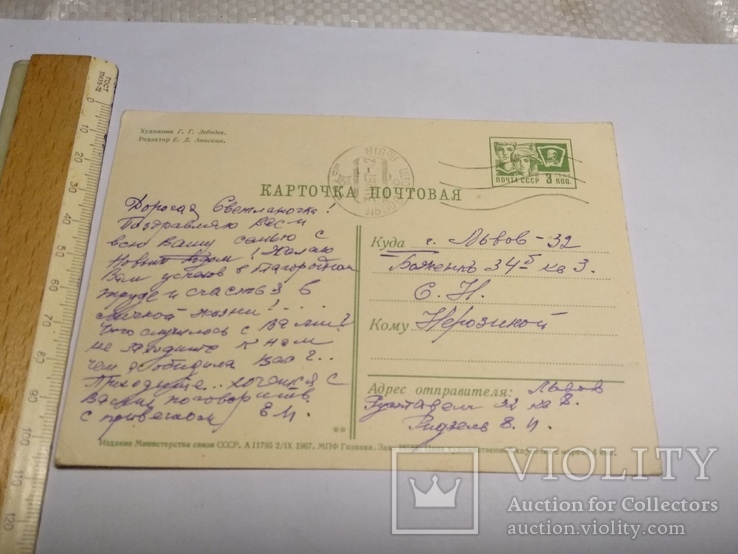 Художник Г. Г. Лебедев.
Редактор Е. Д. Анискин.
ПОЧТА СССР 3 КОП.
КАРТОЧКА ПОЧТОВАЯ
Дорогая Светланочка!
Поздравляю Вас и
всю Вашу семью с
Новым годом! Желаю
Вам успехов в благородном
труде и счастья в
личной жизни! . . .
Чего случилось с Вами?
не заходите к нам
чем обидела Вас? . .
Приходите.. хочется с
Вами поговорить.
с приветом Е И.
Куда г. Львов-32
Боженко 34б кв 3.
Кому С. Н.
Нерозиной
Адрес отправителя: Львов
Руставели 32 кв
Е. И.
Издание Министерства связи СССР. А 11795 2/IX 1967. МПФ Гознака.
120 110 100 90 80 70 60 50 40 30 20 10 0
ГОСТ
VIOLITY
Auction for Collectors
auction.violity.com